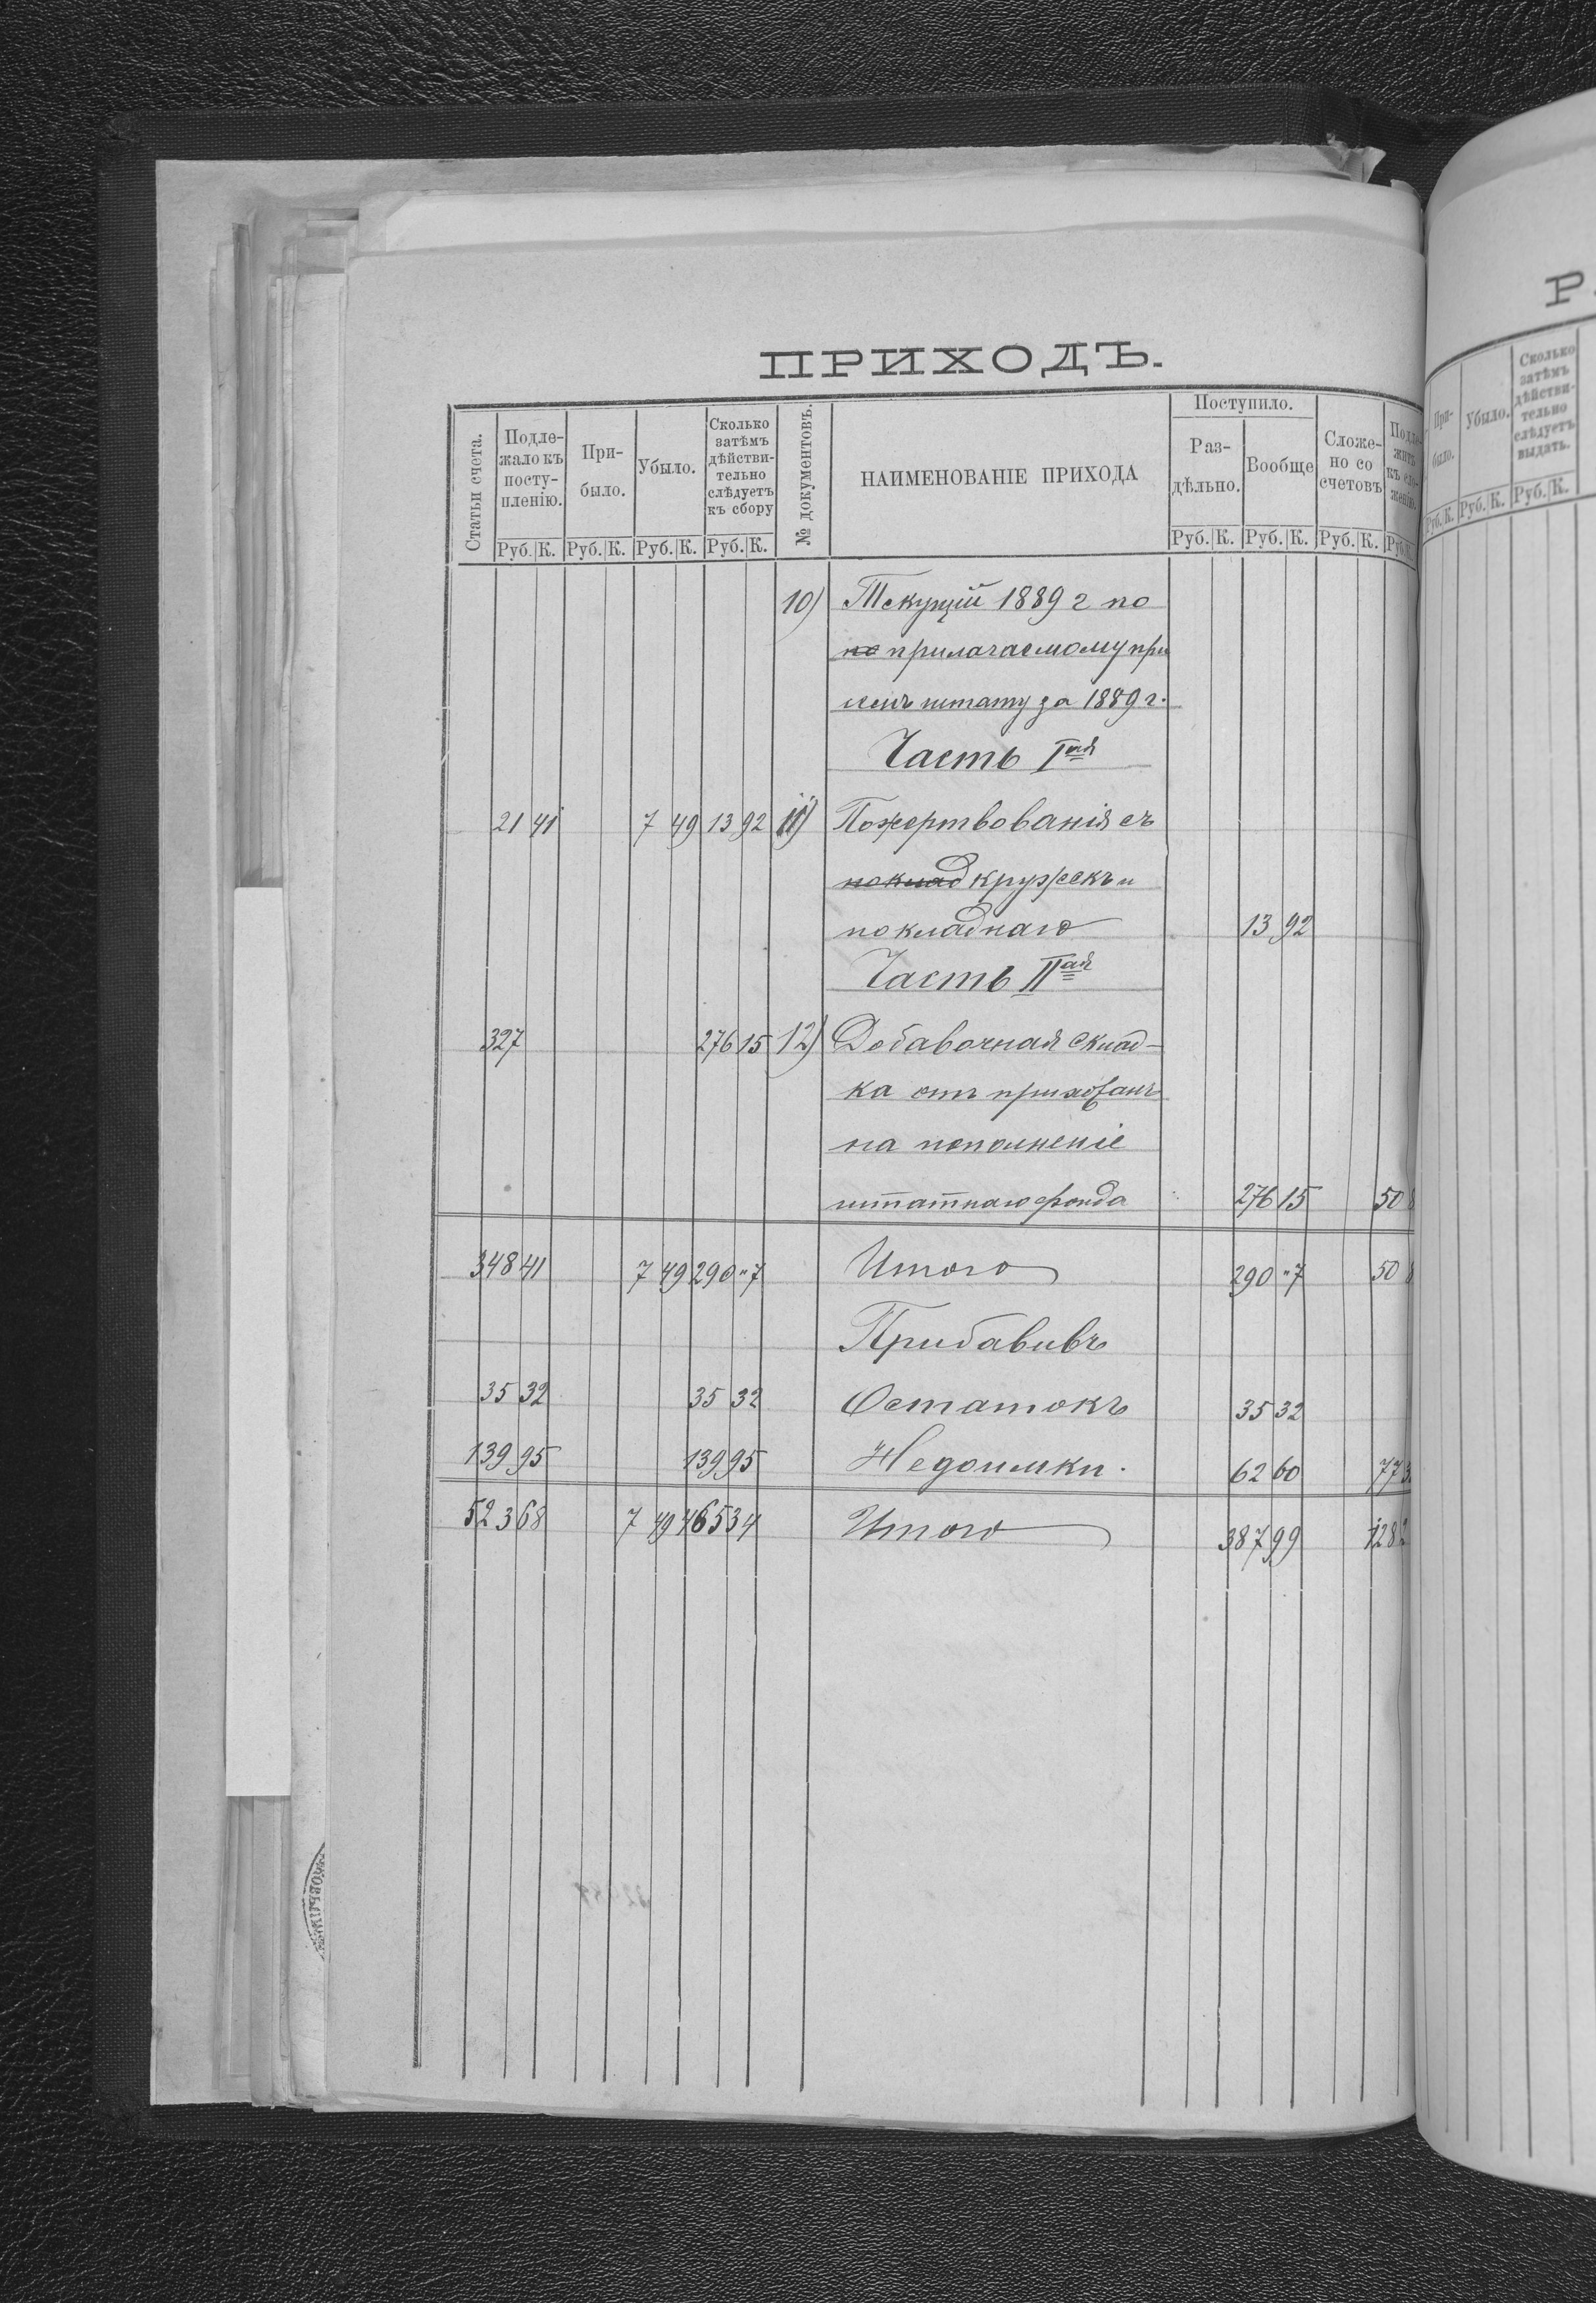 ПРИХОДЪ.
Статьи счета. Подле-жало къ посту-пленію. При-было. Убыло. Сколько затѣмъ дѣйстви-тельно слѣдуетъ къ сбору № документовъ. НАИМЕНОВАНІЕ ПРИХОДА Поступило. Раз-дѣльно. Вообще Сложе-но со счетовъ Подле-житъ къ сло-женію.
Руб. К. Руб. К. Руб. К. Руб. К. Руб. К. Руб. К. Руб. К. Руб.
10) Текущій 1889 г по
по прилагаемому при
семъ штату за 1889 г.
Часть Iая
21 41 7 49 13 92 11) Пожертвованія съ
поклад кружекъ и
покладнаго 13 92
Часть IIая
327 276 15 12) Добавочная склад-
ка отъ прихожанъ
на пополненіе
штатнаго фонда 276 15 50
348 41 7 49 290 "7 Итого 290 "7 50
Прибавивъ
35 32 35 32 Остатокъ 35 32
139 95 139 95 Недоимки. 62 60 77
523 68 7 49 465 34 Итого 387 99 128
Р
При-было. Убыло. Сколько затѣмъ дѣйстви-тельно слѣдуетъ выдать.
Руб. К. Руб. К. Руб. К.